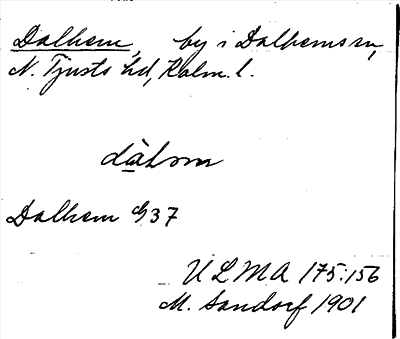 Dalhem, by i Dalhems sn,
N. Tjusts hd, Kalm. l.
dàlom
Dalhem 37
ULMA 175:156
M. Sandorf 1901